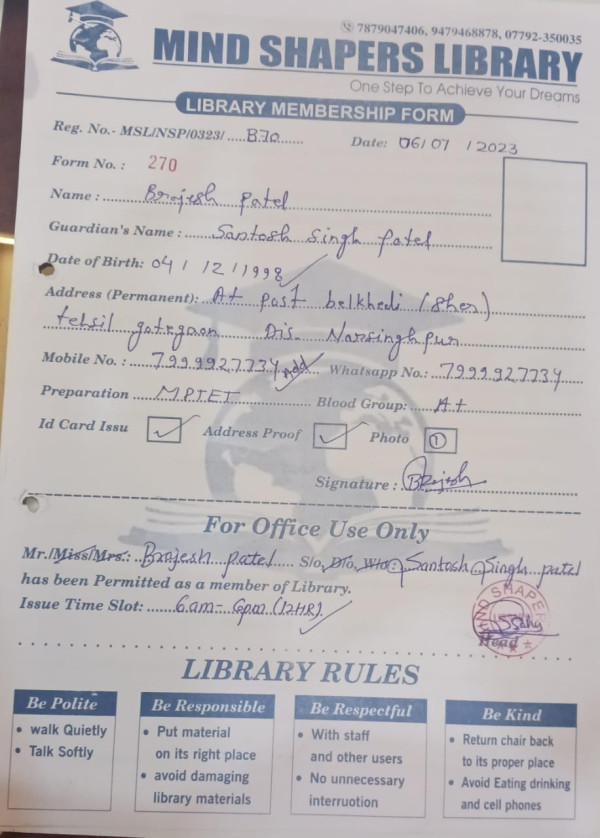 7879047406, 9479468878, 07792-350035
MIND SHAPERS LIBRARY
One Step To Achieve Your Dreams
LIBRARY MEMBERSHIP FORM
Reg. No.- MSL/NSP/0323/ B70 Date: 06/07/2023
Form No. : 270
Name : Brajesh Patel
Guardian's Name : Santosh Singh Patel
Date of Birth: 04/12/1998
Address (Permanent): At post belkhedi (Sher)
tehsil gotegaon Dis. Narsinghpur
Mobile No. : 7999927734 Add Whatsapp No.: 7999927734
Preparation MPTET Blood Group: A+
Id Card Issu Address Proof Photo 1
Signature : Brajesh
For Office Use Only
Mr./Miss/Mrs.: Brajesh patel S/o, D/o, W/o Santosh Singh patel
has been Permitted as a member of Library.
Issue Time Slot: 6am - 6pm (12HR)
MIND SHAPE
Head
LIBRARY RULES
Be Polite
• walk Quietly
• Talk Softly
Be Responsible
• Put material
on its right place
• avoid damaging
library materials
Be Respectful
• With staff
and other users
• No unnecessary
interruotion
Be Kind
• Return chair back
to its proper place
• Avoid Eating drinking
and cell phones